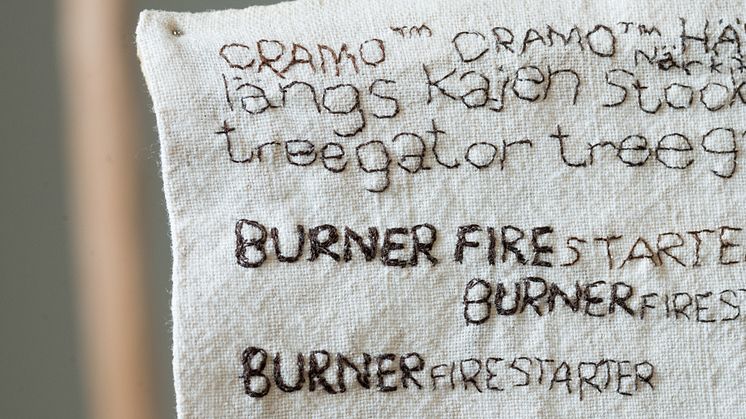 CRAMO™ CRAMO™ HÄ
längs kajen stock
treegator treeg
BURNER FIRESTARTER
BURNERFIREST
BURNERFIRESTARTER